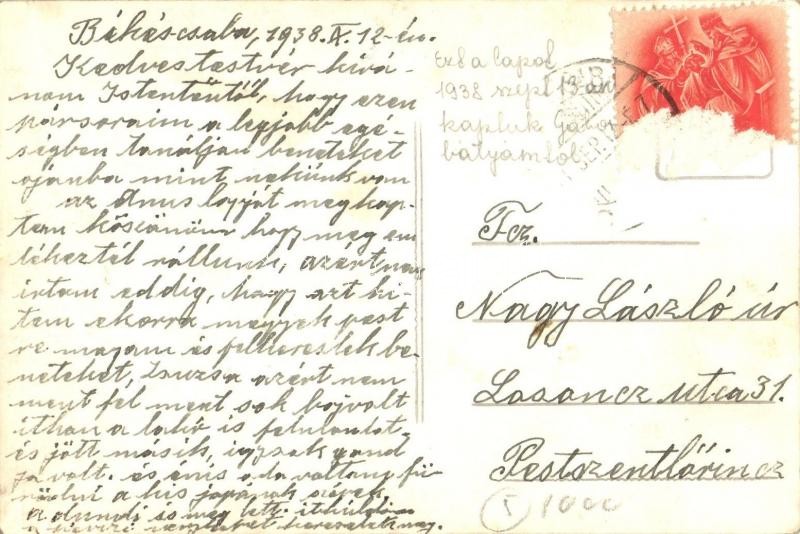 Békéscsaba, 1938. IX. 12-én.
Kedves testvér kivá-
nom Istentűtől, hogy ezen
pársoraim a legjobb egé-
ségben tanáljan beneteket
ojanba mint nekünk van
az Anus lapját megkap-
tam kösziönöm hogy meg em
lékeztél rállunk, azért nem
irtam eddig, hogy azt hi-
tem ekorra megyek pest
re magam és felkereslek be-
neteket, Zsuzsa azért nem
ment fel mert sok baj volt
itthan a lakó is felmontot-
és jött másik, igy sak gond
ja volt. és énis oda voltam fü-
rödni a kis
a dundi is meg lett. itküldöm
Ezt a lapot
1938 szept 13-án
kaptuk Gábor
bátyámtól
Fcz.
Nagy László úr
Losoncz utca 31.
Pestszentlőrincz
I 1000